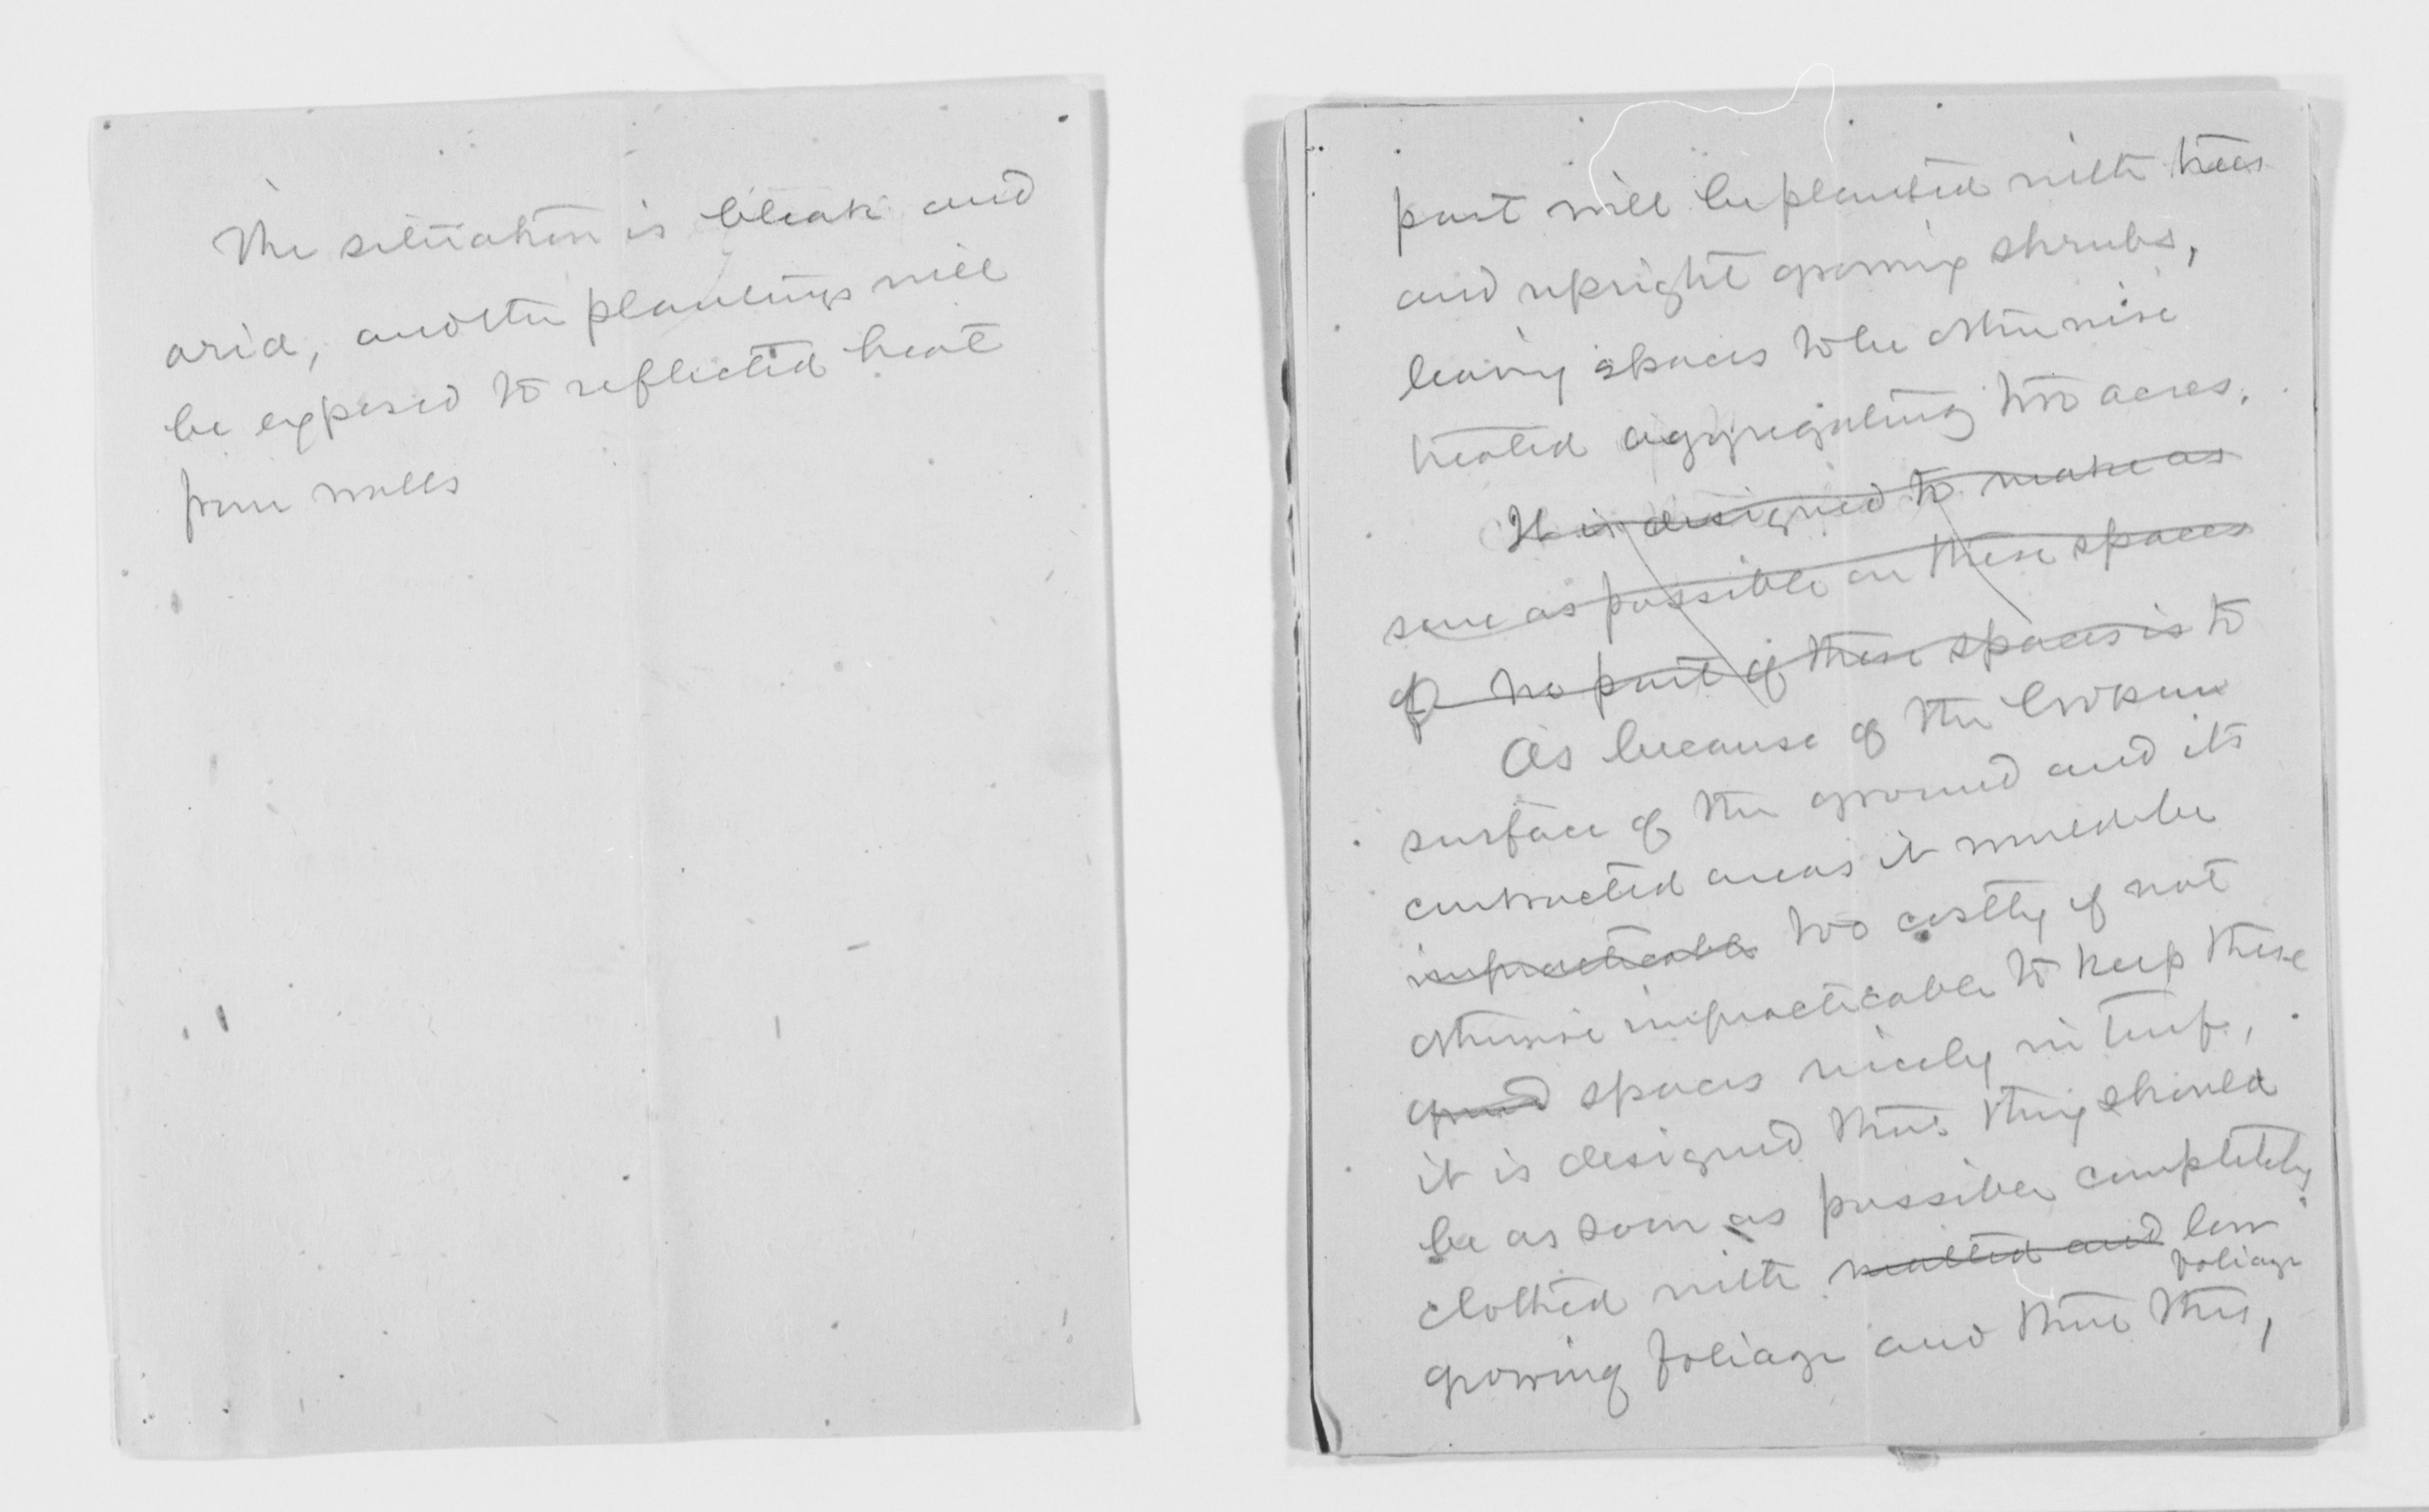 The situation is bleak and
arid, and the plantings will
be exposed to reflected heat
from walls
part will be planted with trees
and upright growing shrubs,
leaving spaces to be otherwise
treated aggregating two acres.
It is designed to make as
soon as possible on these spaces
of no part of these spaces is to
As because of the broken
surface of the ground and its
contracted areas it would be
impracticable too costly if not
otherwise impracticable to keep these
ground spaces nicely in turf,
it is designed that they should
be as soon as possible completely
clothed with matted and low
foliage
growing foliage and that this,